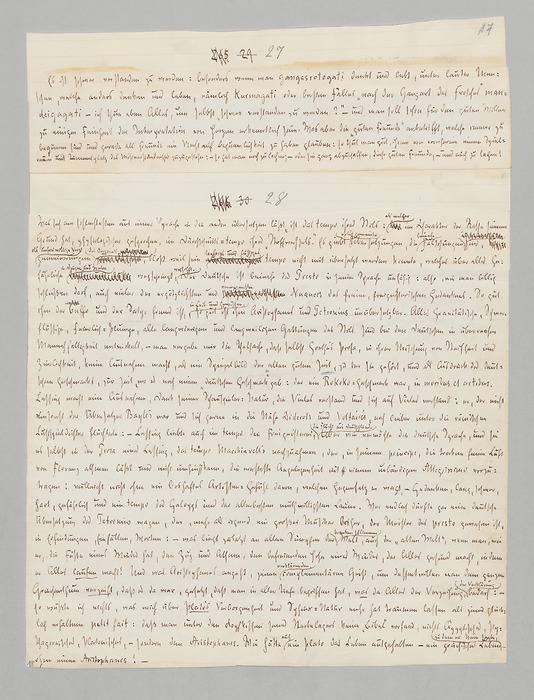 17
265 29 27
Es ist schwer verstanden zu werden: besonders wenn man gangasrotogati denkt und lebt, unter lauter Men-
schen, welche anders denken und leben, nämlich kurmagati oder besten Falles „nach der Gangart des Frosches“ man-
deigagati – ich thue eben Alles, um selbst schwer verstanden zu werden? – und man soll schon für den guten Willen
zu einiger Feinheit der Interpretation von Herzen erkenntlich sein. Was aber „die guten Freunde“ anbetrifft, welche immer zu
bequem sind und gerade als Freunde ein Recht auf Bequemlichkeit zu haben glauben: so thut man gut, ihnen von vornherein einen Spiel-
raum und Tummelplatz des Mißverständnisses zuzugestehn: – so hat man noch zu lachen; – oder sie ganz abzuschaffen, diese guten Freunde, – und auch zu lachen!
30 28
Was sich am schlechtesten aus einer Sprache in die andere übersetzen läßt, ist das tempo ihres Stils: als welcher im Charakter der Rasse seinen
Grund hat, physiologischer gesprochen, im Durchschnitts-tempo ihres „Stoffwechsels“. Es giebt ehrlich gemeinte Übersetzungen, die beinahe Fälschungen sind, als unfreiwillige
Vergemeinerungen des Originals, bloß weil sein tapferes und lustiges tempo nicht mit übersetzt werden konnte, welches über alles Ge-
fährliche in Dingen und Worten wegspringt, weghilft. Der Deutsche ist beinahe des Presto in seiner Sprache unfähig: also, wie man billig
schließen darf, auch vieler der ergötzlichsten und verwegensten Nuances des freien, freigeisterischen Gedankens. So gut
ihm der Buffo und der Satyr fremd ist, in Leib und Gewissen, so gut ist ihm Aristophanes und Petronius unübersetzbar. Alles Gravitätische, Schwer-
flüssige, Feierlich-Plumpe, alle langwierigen und langweiligen Gattungen des Stils sind bei den Deutschen in überreicher
Mannichfaltigkeit entwickelt, – man vergebe mir die Thatsache, daß selbst Goethe's Prosa, in ihrer Mischung von Steifheit und
Zierlichkeit, keine Ausnahme macht, als ein Spiegelbild der „alten guten Zeit“, zu der sie gehört, und als Ausdruck des deut-
schen Geschmacks, zur Zeit, wo es noch einen „deutschen Geschmack“ gab: der ein Rokoko-Geschmack war, in moribus et artibus.
Lessing macht eine Ausnahme, Dank seiner Schauspieler-Natur, die Vieles verstand und sich auf Vieles verstand: er, der nicht
umsonst der Übersetzer Bayle's war und sich gerne in die Nähe Diderot's und Voltaire's, noch lieber unter die römischen
Lustspieldichter flüchtete: – Lessing liebte auch im tempo die Freigeisterei, die Flucht aus Deutschland. Aber wie vermöchte die deutsche Sprache, und sei
es selbst in der Prosa eines Lessing, das tempo Macchiavell's nachzuahmen, der, in seinem principe, die trockne feine Luft
von Florenz athmen läßt und nicht umhin kann, die ernsteste Angelegenheit in einem unbändigen Allegrissimo vorzu-
tragen: vielleicht nicht ohne ein boshaftes Artisten-Gefühl davon, welchen Gegensatz er wagt, – Gedanken, lang, schwer,
hart, gefährlich und ein tempo des Galopps und der allerbesten muthwilligsten Laune. Wer endlich dürfte gar eine deutsche
Übersetzung des Petronius wagen, der, mehr als irgend ein großer Musiker bisher, der Meister des presto gewesen ist,
in Erfindungen, Einfällen, Worten: – was liegt zuletzt an allen Sümpfen der kranken, schlimmen Welt, auch der „alten Welt“, wenn man, wie
er, die Füße eines Windes hat, den Zug und Athem, den befreienden Hohn eines Windes, der Alles gesund macht, indem
er Alles laufen macht! Und was Aristophanes angeht, jenen verklärenden, complementären Geist, um dessentwillen man dem ganzen
Griechenthum verzeiht, daß es da war, gesetzt, daß man in aller Tiefe begriffen hat, was da Alles der Verzeihung, der Verklärung bedarf: –
so wüßte ich nichts, was mich über Plato's Verborgenheit und Sphinx-Natur mehr hat träumen lassen als jenes glück-
lich erhaltene petit fait: daß man unter dem Kopfkissen seines Sterbelagers keine „Bibel“ vorfand, nichts Ägyptisches, Py-
thagoreisches, Platonisches, – sondern den Aristophanes. Wie hätte auch ein Plato das Leben ausgehalten – ein griechisches Leben, zu dem er Nein sagte, –
ohne einen Aristophanes! –